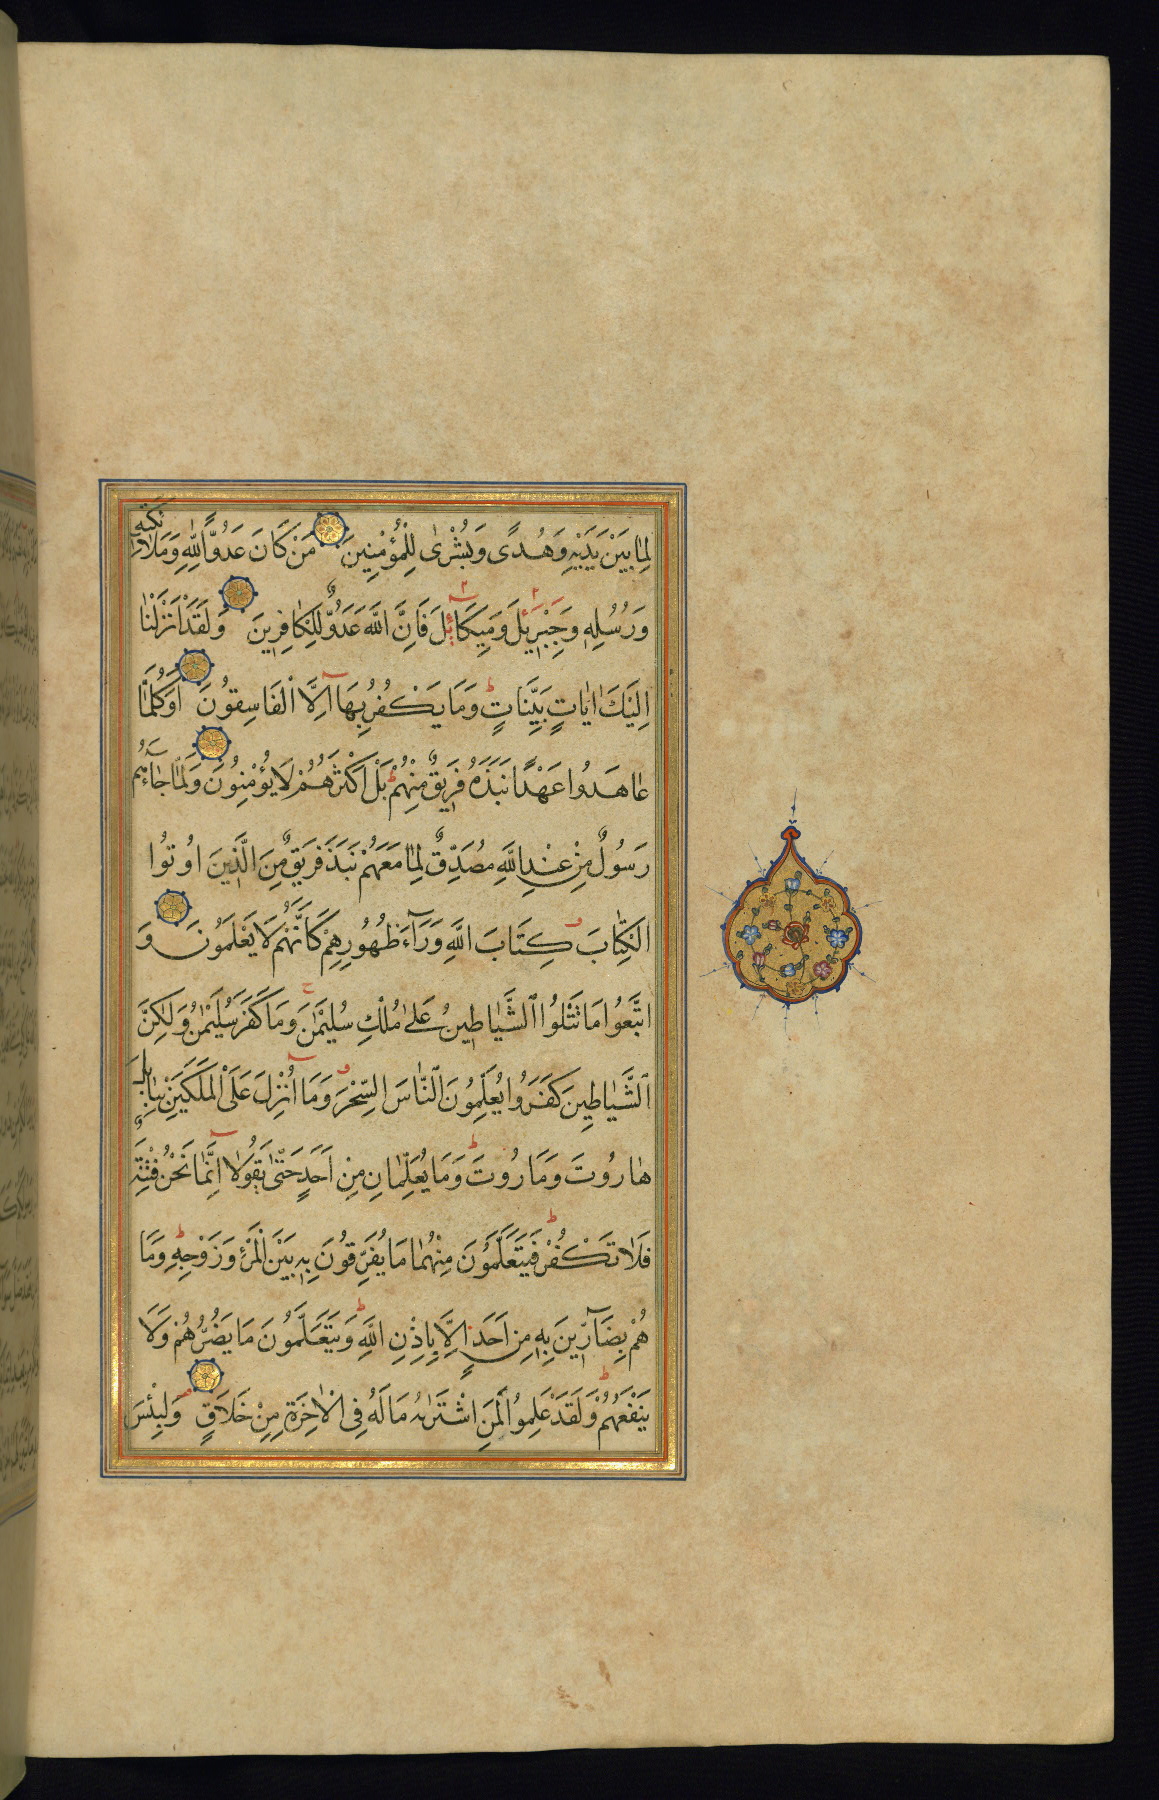 لِمَا بَيْنَ يَدَيْهِ وَهُدًى وَبُشْرٰى لِلْمُؤْمِنِينَ مَنْ كَانَ عَدُوًّا لِلّٰهِ وَمَلٰئِكَتِهِ
وَرُسُلِهِ وَجِبْرِيلَ وَمِيكَائِلَ فَاِنَّ اللّٰهَ عَدُوٌّ لِلْكَافِرِينَ وَلَقَدْ اَنْزَلْنَا
اِلَيْكَ اٰيَاتٍ بَيِّنَاتٍ وَمَا يَكْفُرُ بِهَا اِلَّا الْفَاسِقُونَ اَوَكُلَّمَا
عَاهَدُوا عَهْدًا نَبَذَهُ فَرِيقٌ مِنْهُمْ بَلْ اَكْثَرُهُمْ لَا يُؤْمِنُونَ وَلَمَّا جَاءَهُمْ
رَسُولٌ مِنْ عِنْدِ اللّٰهِ مُصَدِّقٌ لِمَا مَعَهُمْ نَبَذَ فَرِيقٌ مِنَ الَّذِينَ اُوتُوا
الْكِتَابَ كِتَابَ اللّٰهِ وَرَآءَ ظُهُورِهِمْ كَاَنَّهُمْ لَا يَعْلَمُونَ وَ
اتَّبَعُوا مَا تَتْلُوا الشَّيَاطِينُ عَلٰى مُلْكِ سُلَيْمٰنَ وَمَا كَفَرَ سُلَيْمٰنُ وَلٰكِنَّ
الشَّيَاطِينَ كَفَرُوا يُعَلِّمُونَ النَّاسَ السِّحْرَ وَمَا اُنْزِلَ عَلَى الْمَلَكَيْنِ بِبَابِلَ
هَارُوتَ وَمَارُوتَ وَمَا يُعَلِّمَانِ مِنْ اَحَدٍ حَتّٰى يَقُولَا اِنَّمَا نَحْنُ فِتْنَةٌ
فَلَا تَكْفُرْ فَيَتَعَلَّمُونَ مِنْهُمَا مَا يُفَرِّقُونَ بِهِ بَيْنَ الْمَرْءِ وَزَوْجِهِ وَمَا
هُمْ بِضَآرِّينَ بِهِ مِنْ اَحَدٍ اِلَّا بِاِذْنِ اللّٰهِ وَيَتَعَلَّمُونَ مَا يَضُرُّهُمْ وَلَا
يَنْفَعُهُمْ وَلَقَدْ عَلِمُوا لَمَنِ اشْتَرٰىهُ مَا لَهُ فِى الْاٰخِرَةِ مِنْ خَلَاقٍ وَلَبِئْسَ